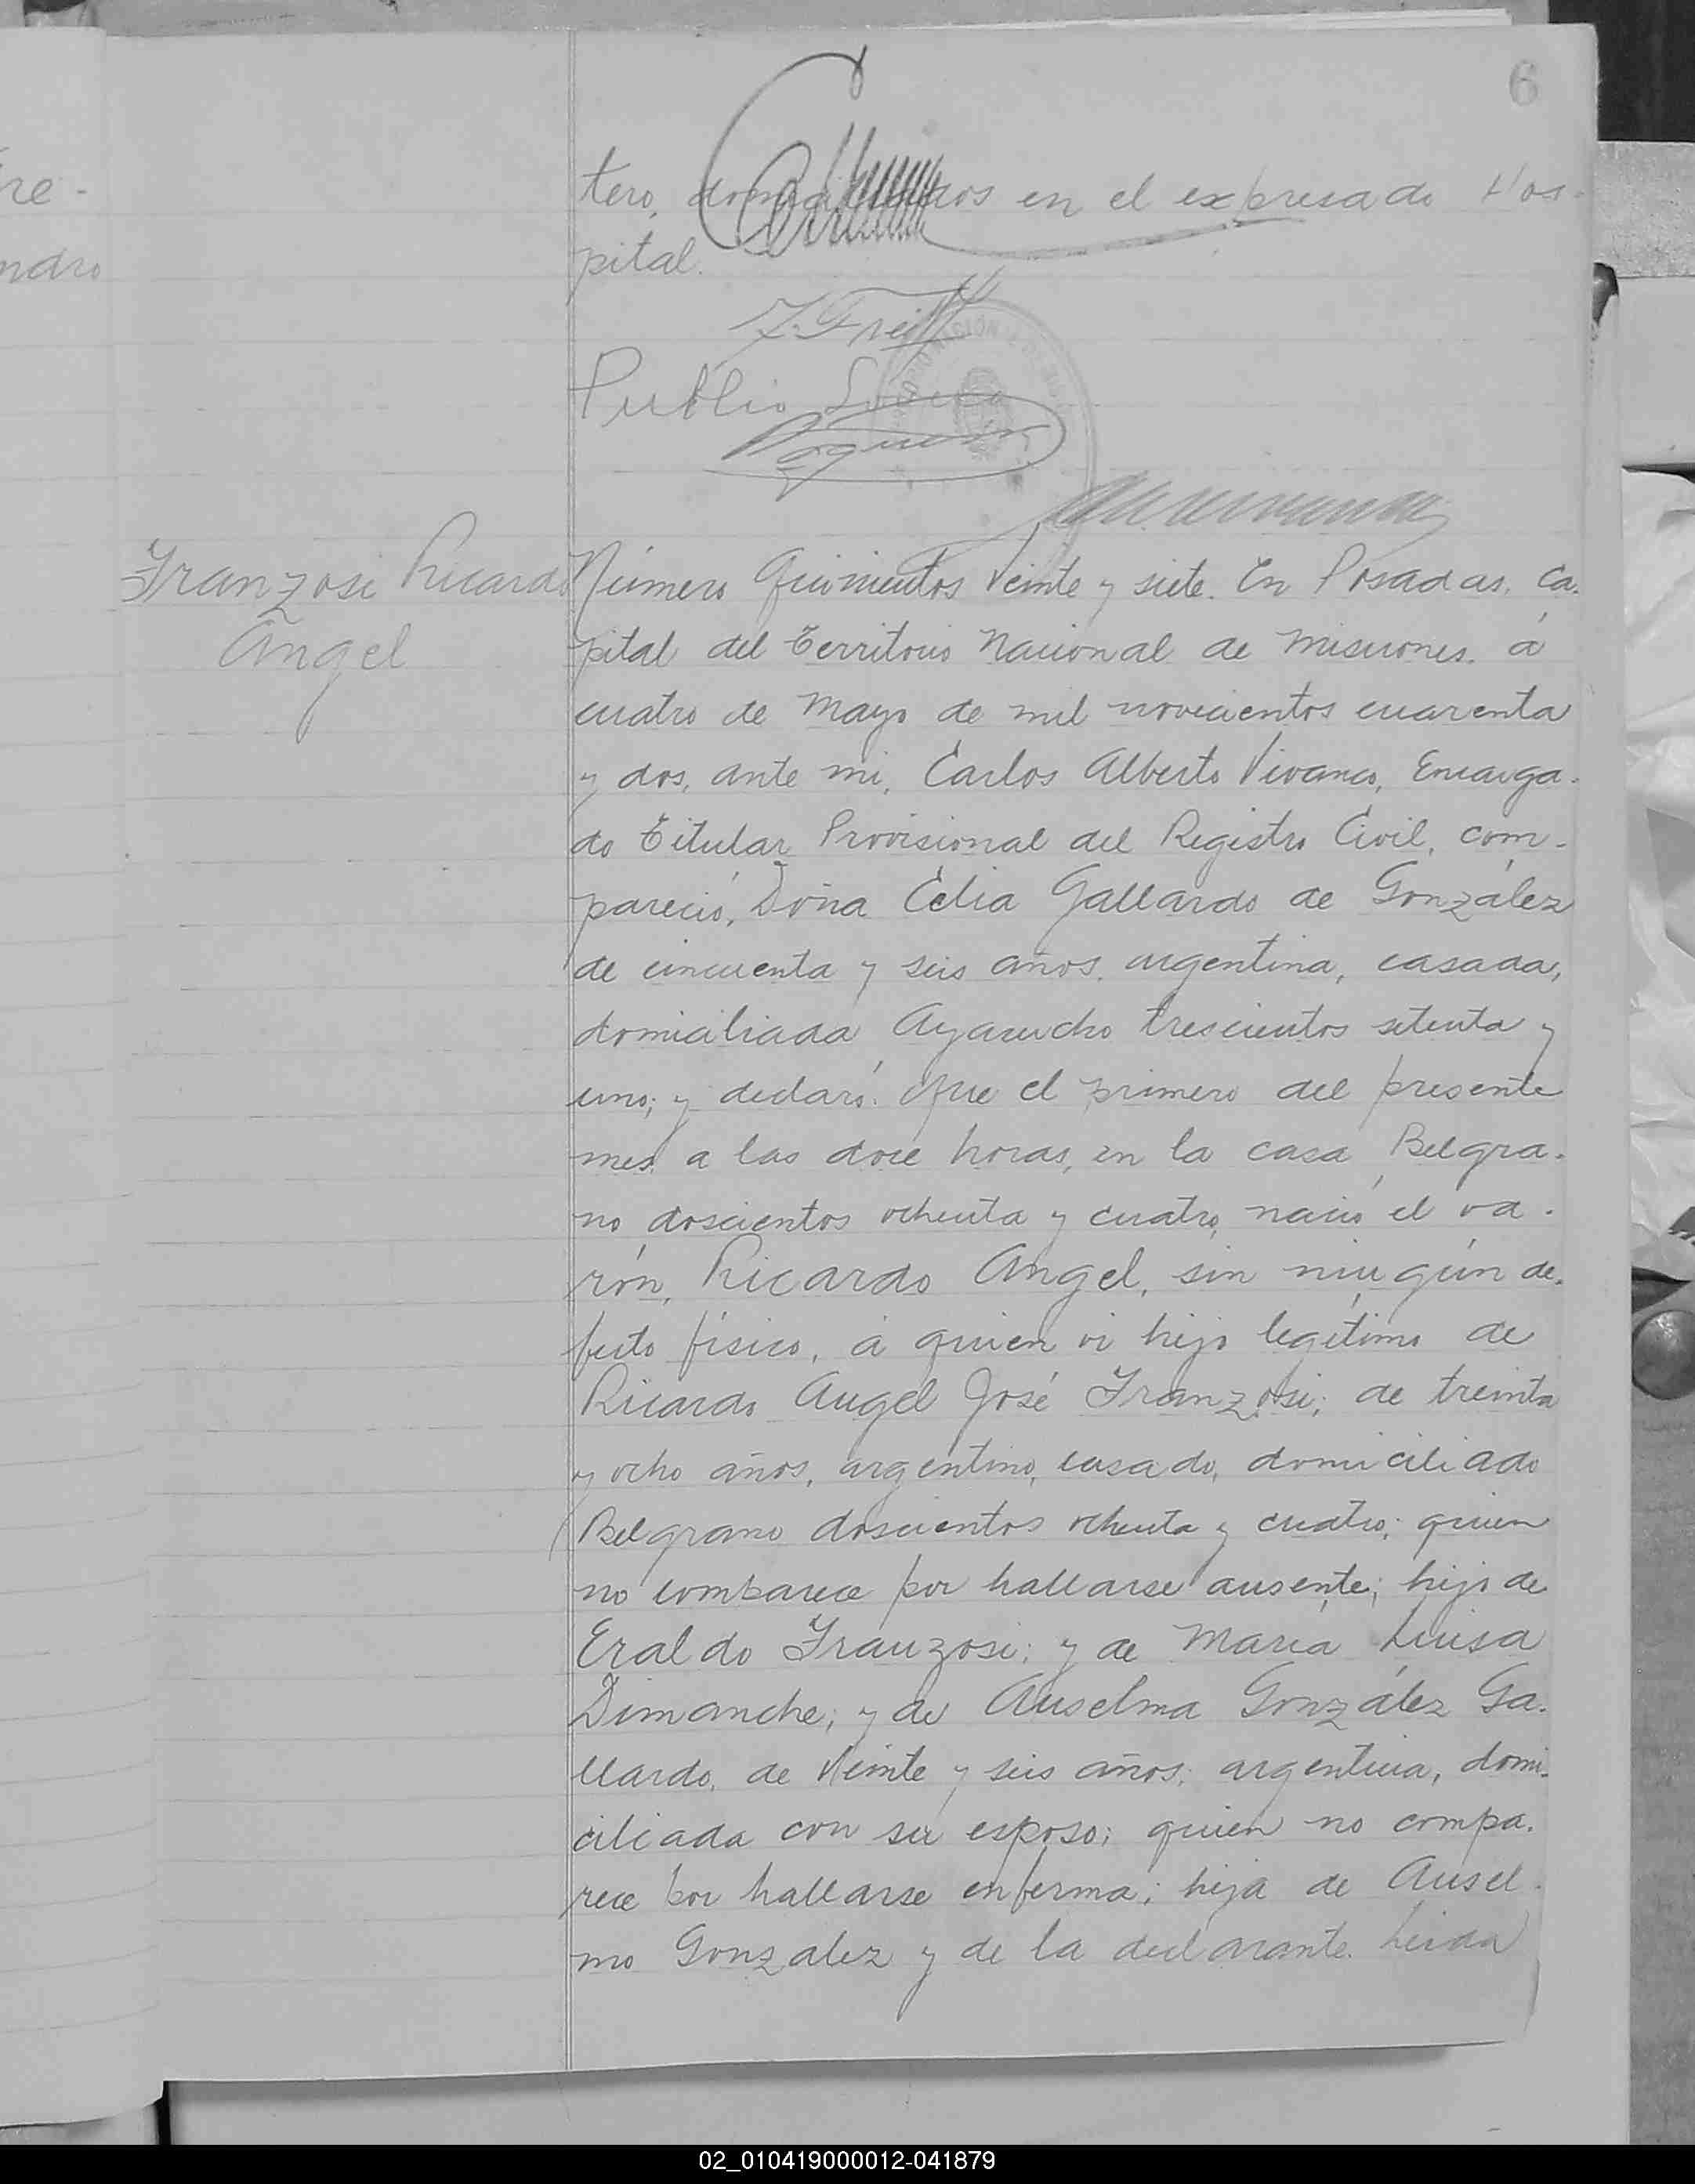 6
re-
ndro
tero, domiciliados en el expresado Hos-
pital.
Publio
Franzosi Ricardo
Angel
Número quinientos veinte y siete. En Posadas, ca-
pital del Territorio Nacional de Misiones, á
cuatro de Mayo de mil novecientos cuarenta
y dos, ante mi, Carlos Alberto Vivanco, Encarga-
do Titular Provisional del Registro Civil, com-
pareció, Doña Celia Gallardo de González
de cincuenta y seis años, argentina, casada,
domiciliada Ayacucho trescientos setenta y
uno; y declaró: Que el primero del presente
mes, a las doce horas, en la casa Belgra-
no doscientos ochenta y cuatro, nació el va-
rón, Ricardo Angel, sin ningún de-
fecto físico, á quien vi hijo legítimo de
Ricardo Angel José Franzosi; de treinta
y ocho años, argentino, casado, domiciliado
Belgrano doscientos ochenta y cuatro; quien
no comparece por hallarse ausente; hijo de
Eraldo Franzosi; y de María Luisa
Dimanche; y de Anselma González Ga-
llardo, de veinte y seis años; argentina, domi-
ciliada con su esposo; quien no compa-
rece por hallarse enferma; hija de Ansel-
mo Gonzalez y de la declarante. Leida
02_010419000012-041879